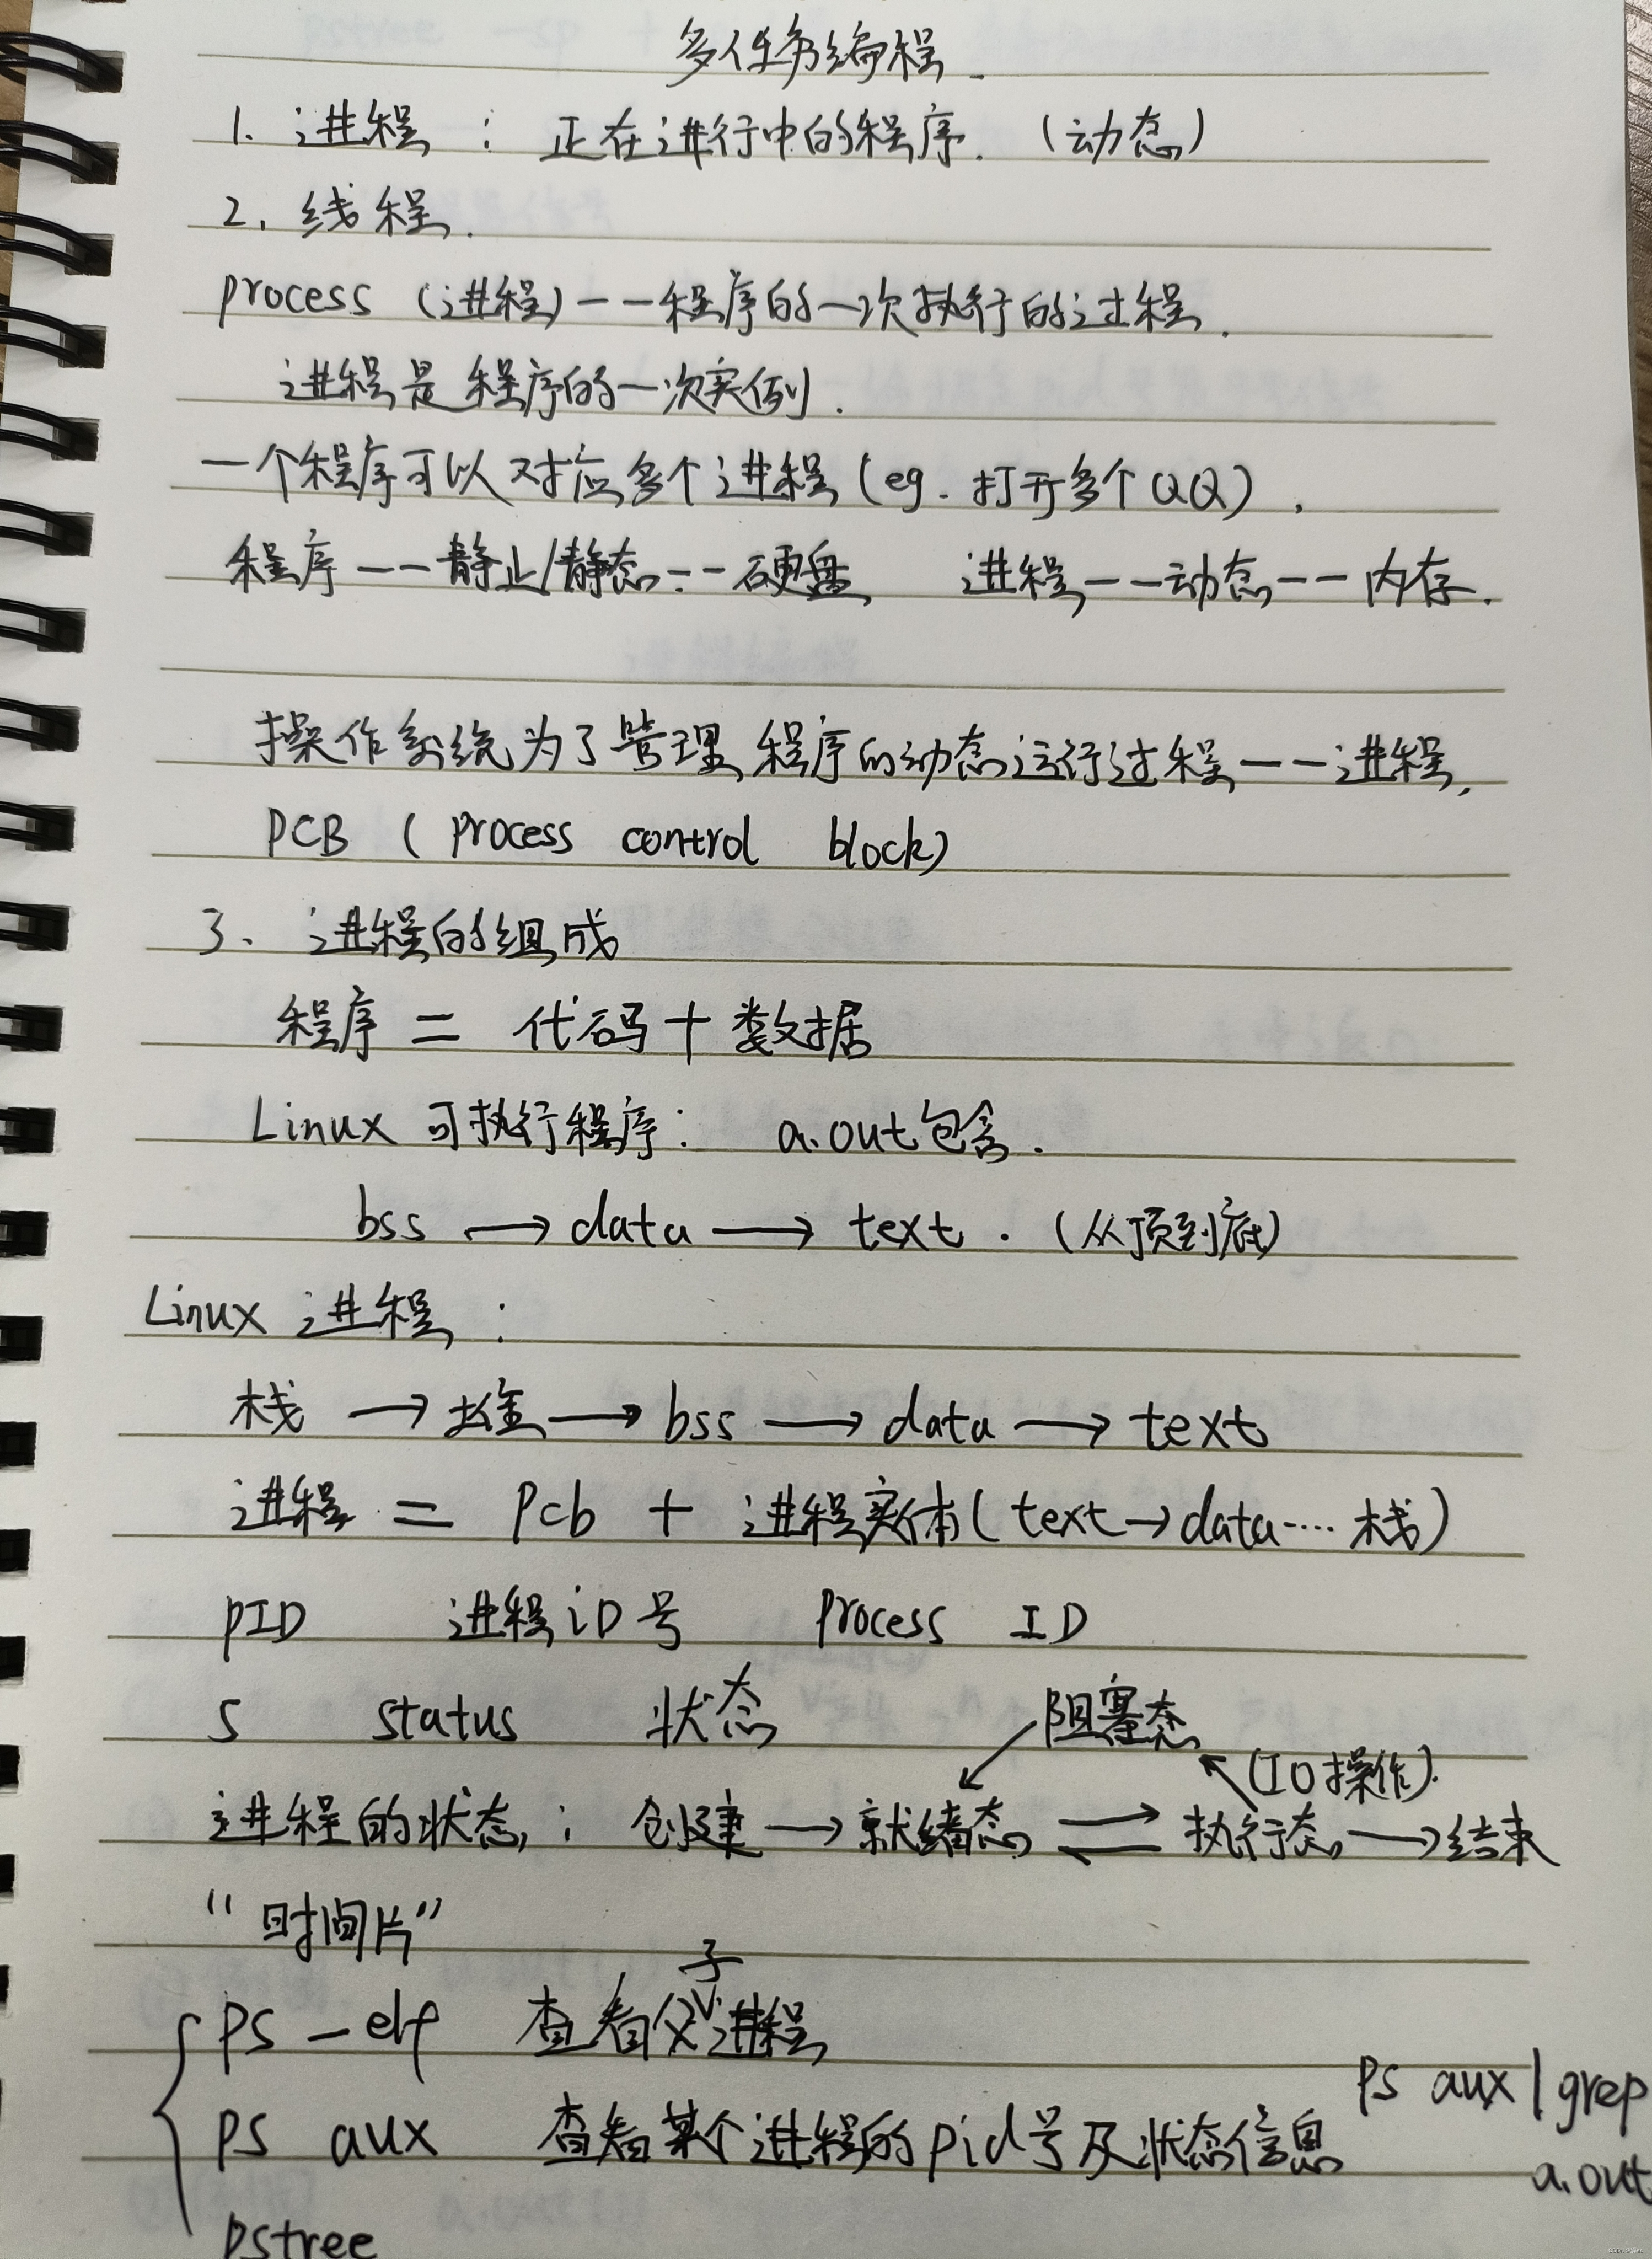 多任务编程
1. 进程 : 正在进行中的程序. (动态)
2. 线程.
process (进程)——程序的一次执行的过程.
进程是程序的一次实例.
一个程序可以对应多个进程(eg. 打开多个QQ).
程序——静止/静态——硬盘 进程——动态——内存.
操作系统为了管理程序的动态运行过程——进程,
PCB ( process control block)
3、进程的组成
程序 = 代码 + 数据
Linux 可执行程序: a.out包含.
bss → data → text. (从顶到底)
Linux 进程 :
栈 → 堆 → bss → data → text
进程 = Pcb + 进程实体(text→data····栈)
PID 进程iD号 Process ID
S status 状态
阻塞态
(IO操作).
进程的状态: 创建 → 就绪态 ⇌ 执行态 → 结束
“时间片”
ps -elf 查看父子进程
ps aux 查看某个进程的pid号及状态信息 ps aux|grep
a.out
pstree